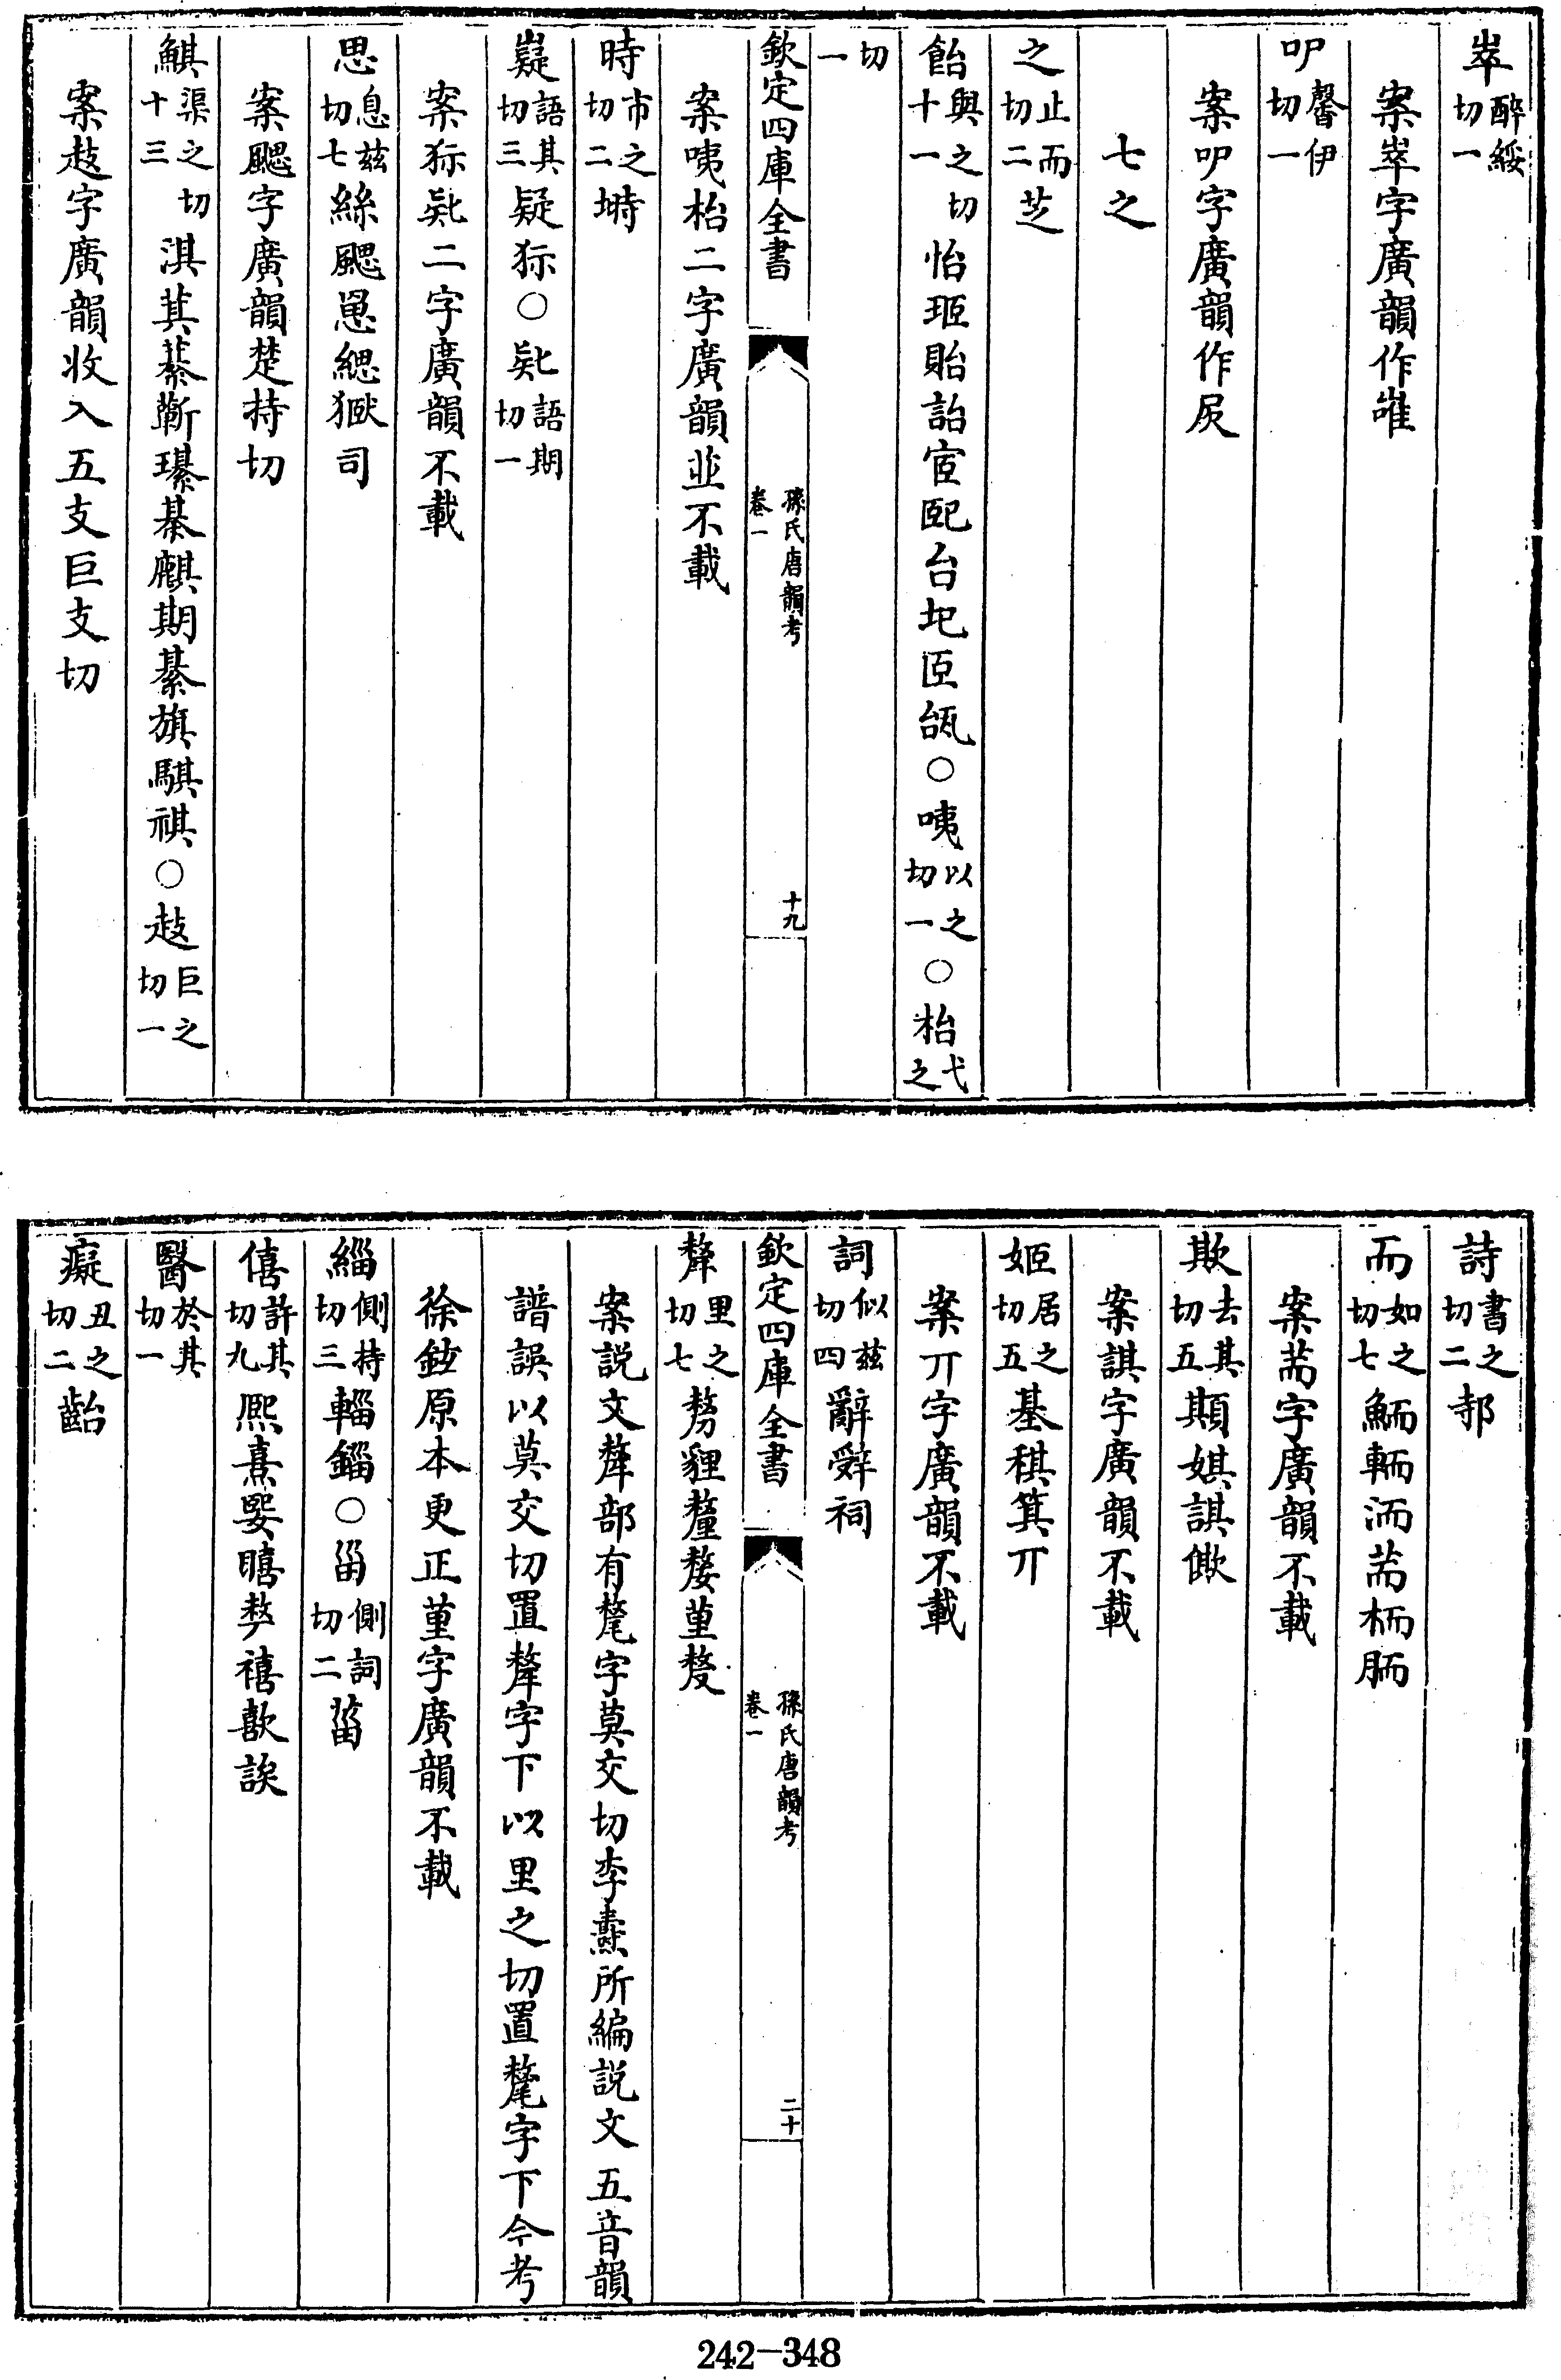 崒醉綏切一
案崒字廣韻作嶉
吚馨伊切一
案吚字廣韻作㞎
七之
之止而切二芝
飴與之切十一怡瓸貽詒宧巸台圯𦣞瓵○咦以之切一○枱弋之
切一
欽定四庫全書
孫氏唐韻考
卷一
十九
案咦枱二字廣韻並不載
時市之切二塒
嶷語其切三疑狋○㠜語期切一
案狋㠜二字廣韻不載
思息兹切七絲颸罳緦獄司
案颸字廣韻楚持切
鯕渠之切十三淇萁綦蘄璂棊麒期綦旗騏祺○𧺆巨之切一
案𧺆字廣韻收入五支巨支切
詩書之切二邿
而如之切七鮞輀洏荋栭胹
案荋字廣韻不載
欺去其切五䫏娸諆僛
案諆字廣韻不載
姬居之切五基稘箕丌
案丌字廣韻不載
詞似兹切四辭辤祠
欽定四庫全書
孫氏唐韻考
卷一
二十
犛里之切七剺貍釐嫠菫𠩺
案説文犛部有氂字莫交切李燾所編説文五音韻
譜誤以莫交切置犛字下以里之切置氂字下今考
徐鉉原本更正菫字廣韻不載
緇側持切三輜錙○甾切側詞二菑
僖許其切九熙熹娶瞦嫠禧歖誒
醫於其切一
癡丑之切二齝
242-348